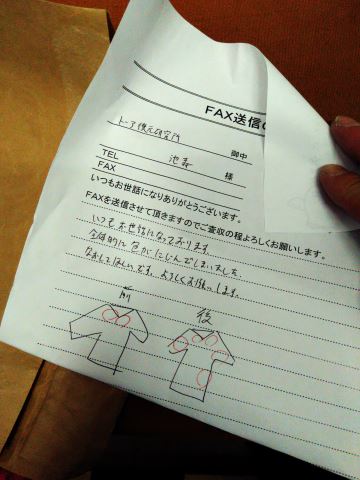 FAX送信の
トーア復元研究所 御中
TEL 池森 様
FAX
いつもお世話になりありがとうございます。
FAXを送信させて頂きますのでご査収の程よろしくお願いします。
いつもお世話になっております。
全体的に色がにじんでしまいました。
なおしてほしいです。よろしくお願いします。
前
後